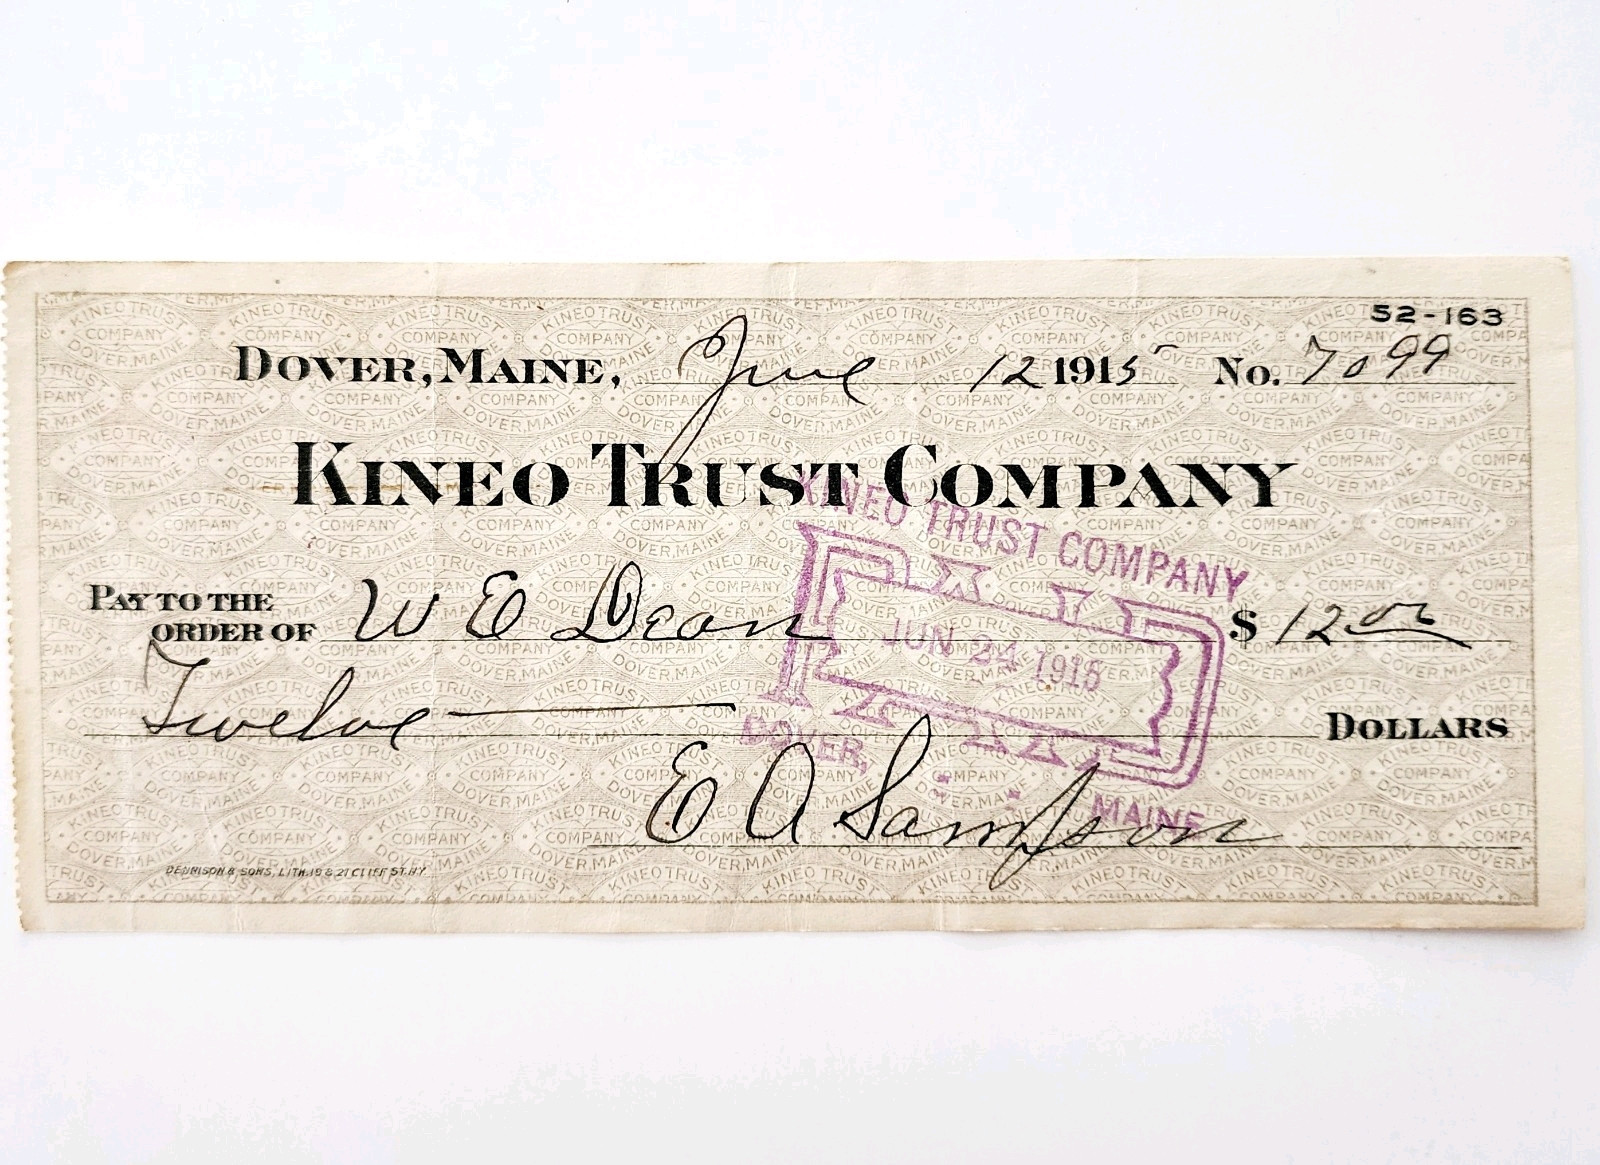 52-163
DOVER, MAINE, June 12 1915 No. 7099
KINEO TRUST COMPANY
PAY TO THE
ORDER OF W E Dean $ 12.00
Twelve DOLLARS
E A Sampson
KINEO TRUST COMPANY
PAID
JUN 24 1915
DOVER, MAINE
DENNISON & SONS, LITH. 19 & 21 CLIFF ST. N.Y.